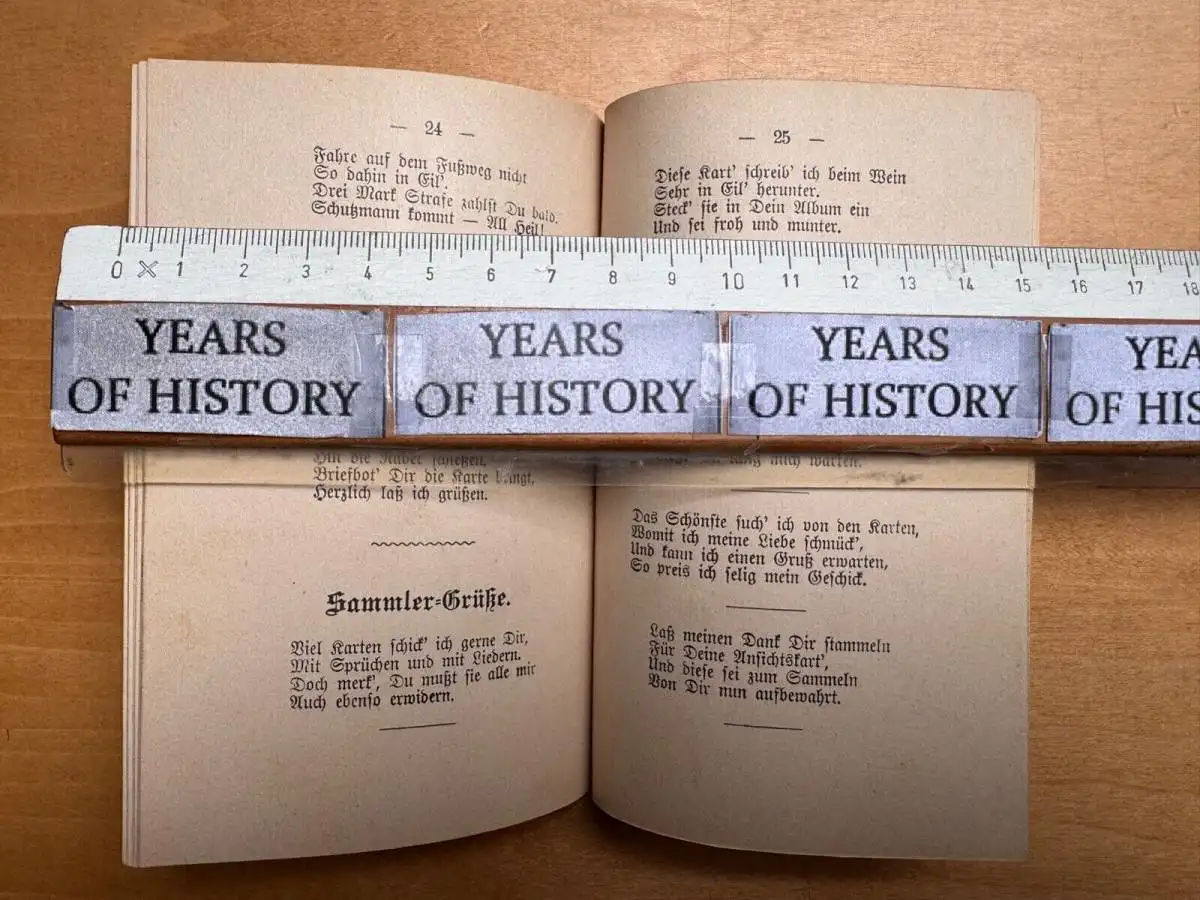 — 24 —
Fahre auf dem Fußweg nicht
So dahin in Eil'.
Drei Mark Strafe zahlst Du bald.
Schutzmann kommt — All Heil!
— 25 —
Diese Kart' schreib' ich beim Wein
Sehr in Eil' herunter.
Steck' sie in Dein Album ein
Und sei froh und munter.
0 1 2 3 4 5 6 7 8 9 10 11 12 13 14 15 16 17 18
YEARS
OF HISTORY
YEARS
OF HISTORY
YEARS
OF HISTORY
YEA
OF HIS
Hin die Räder
Briefbot' Dir die Karte bringt,
Herzlich laß ich grüßen.
Sammler=Grüße.
Viel Karten schick' ich gerne Dir,
Mit Sprüchen und mit Liedern.
Doch merk', Du mußt sie alle mir
Auch ebenso erwidern.
lang mich warten.
Das Schönste such' ich von den Karten,
Womit ich meine Liebe schmück',
Und kann ich einen Gruß erwarten,
So preis ich selig mein Geschick.
Laß meinen Dank Dir stammeln
Für Deine Ansichtskart',
Und diese sei zum Sammeln
Von Dir nun aufbewahrt.